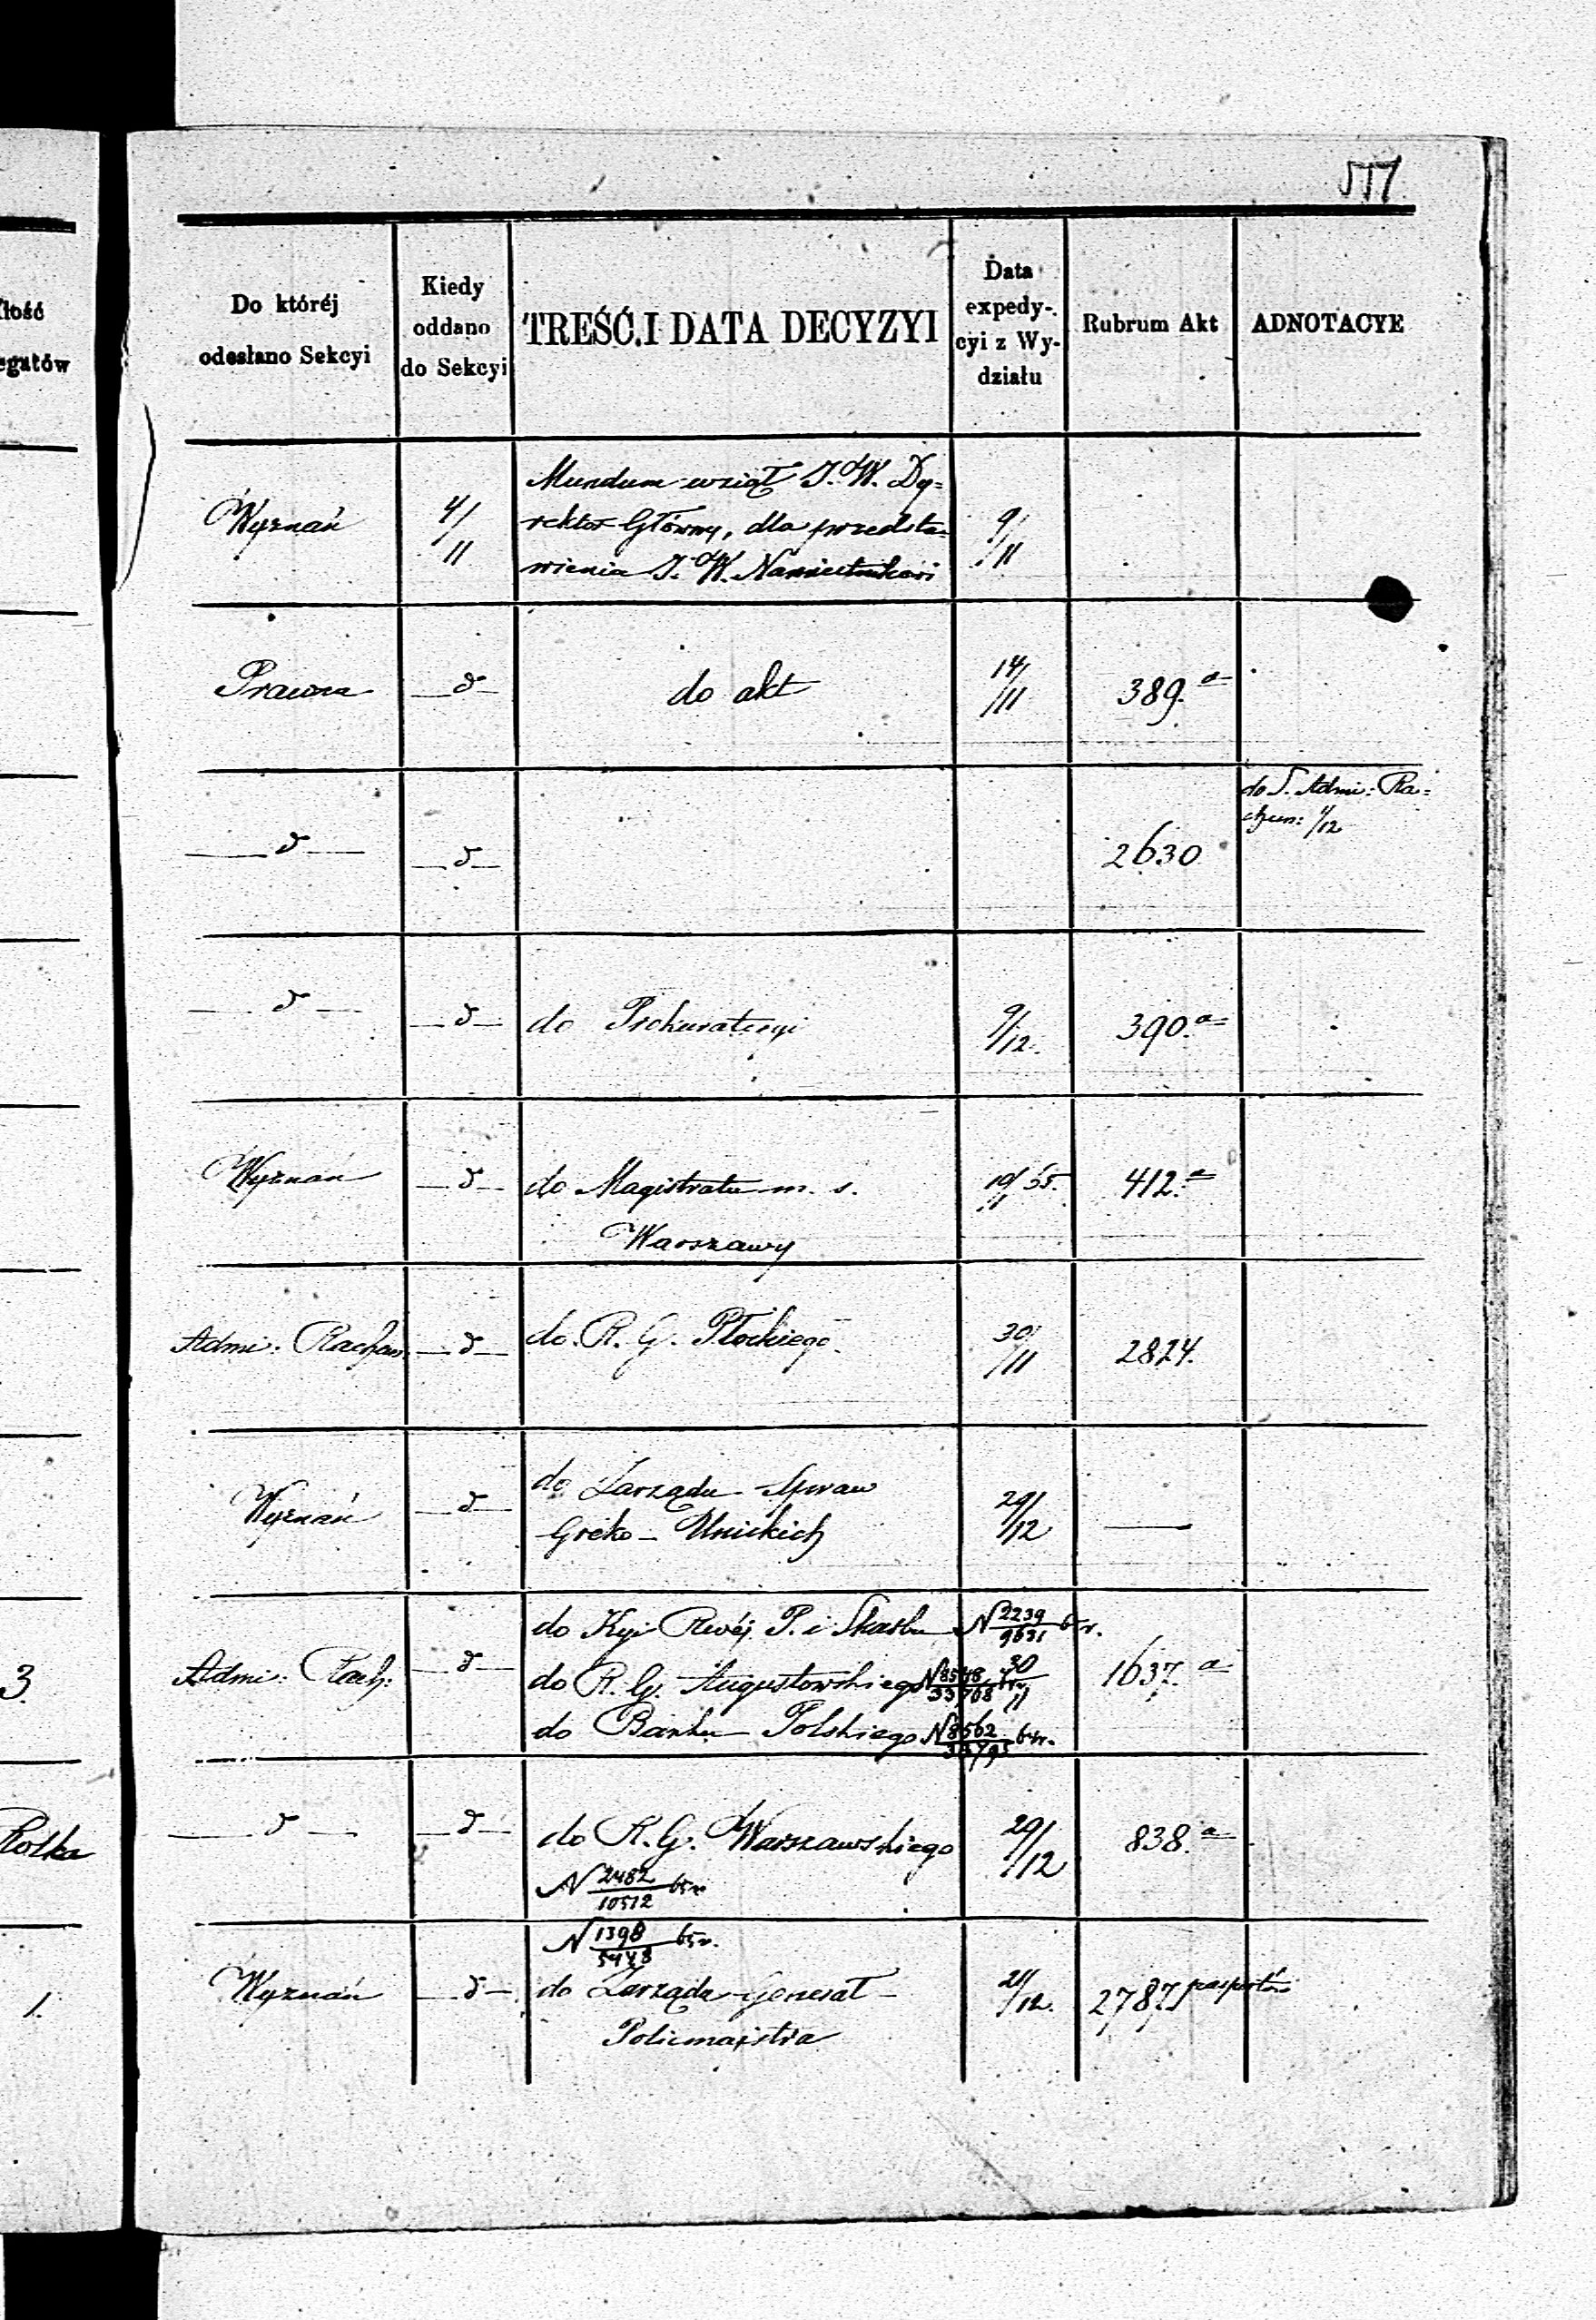 557.
łość
egatów
Do któréj
odesłano Sekcyi
Kiedy
oddano
do Sekcyi
TREŚĆ I DATA DECYZYI
Data
expedy-
cyi z Wy-
działu
Rubrum Akt
ADNOTACYE
Wyznań
4/11
Mundum wziął J. W. Dy=
rektor Główny, dla przedsta=
wienia J. W. Namiestnikowi
9/11
Prawna
— d —
do akt
14/11
389. a
— d —
— d —
2630
do S. Admi: Ra=
chun: 1/12
— d —
— d —
do Prokuratoryi
9/12.
390. a
Wyznań
— d —
do Magistratu m. s.
Warszawy
10/11 65.
412. a
Admi: Rachun.
— d —
do R. G. Płockiego
30/11
2824.
Wyznań
— d —
do Zarządu Spraw
Greko - Unickich
29/12
—
3
Admi: Rach:
— d —
do Kyi Rwéj P. i Skarbu N 2239/9631 65 r.
do R. G. Augustowskiego N 8548/33768 30/11
do Banku Polskiego N 8562 65 r.
1637. a
Rolka
— d —
— d —
do R. G. Warszawskiego
N 2482/10512 65 r
29/12
838. a
1.
Wyznań
— d —
N 1398/5948 65 r.
do Zarządu Generał -
Policmajstra
21/12.
2787. paszportów